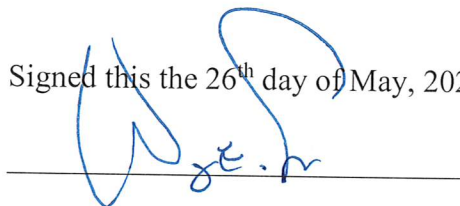 Signed this the 26th day of May, 202